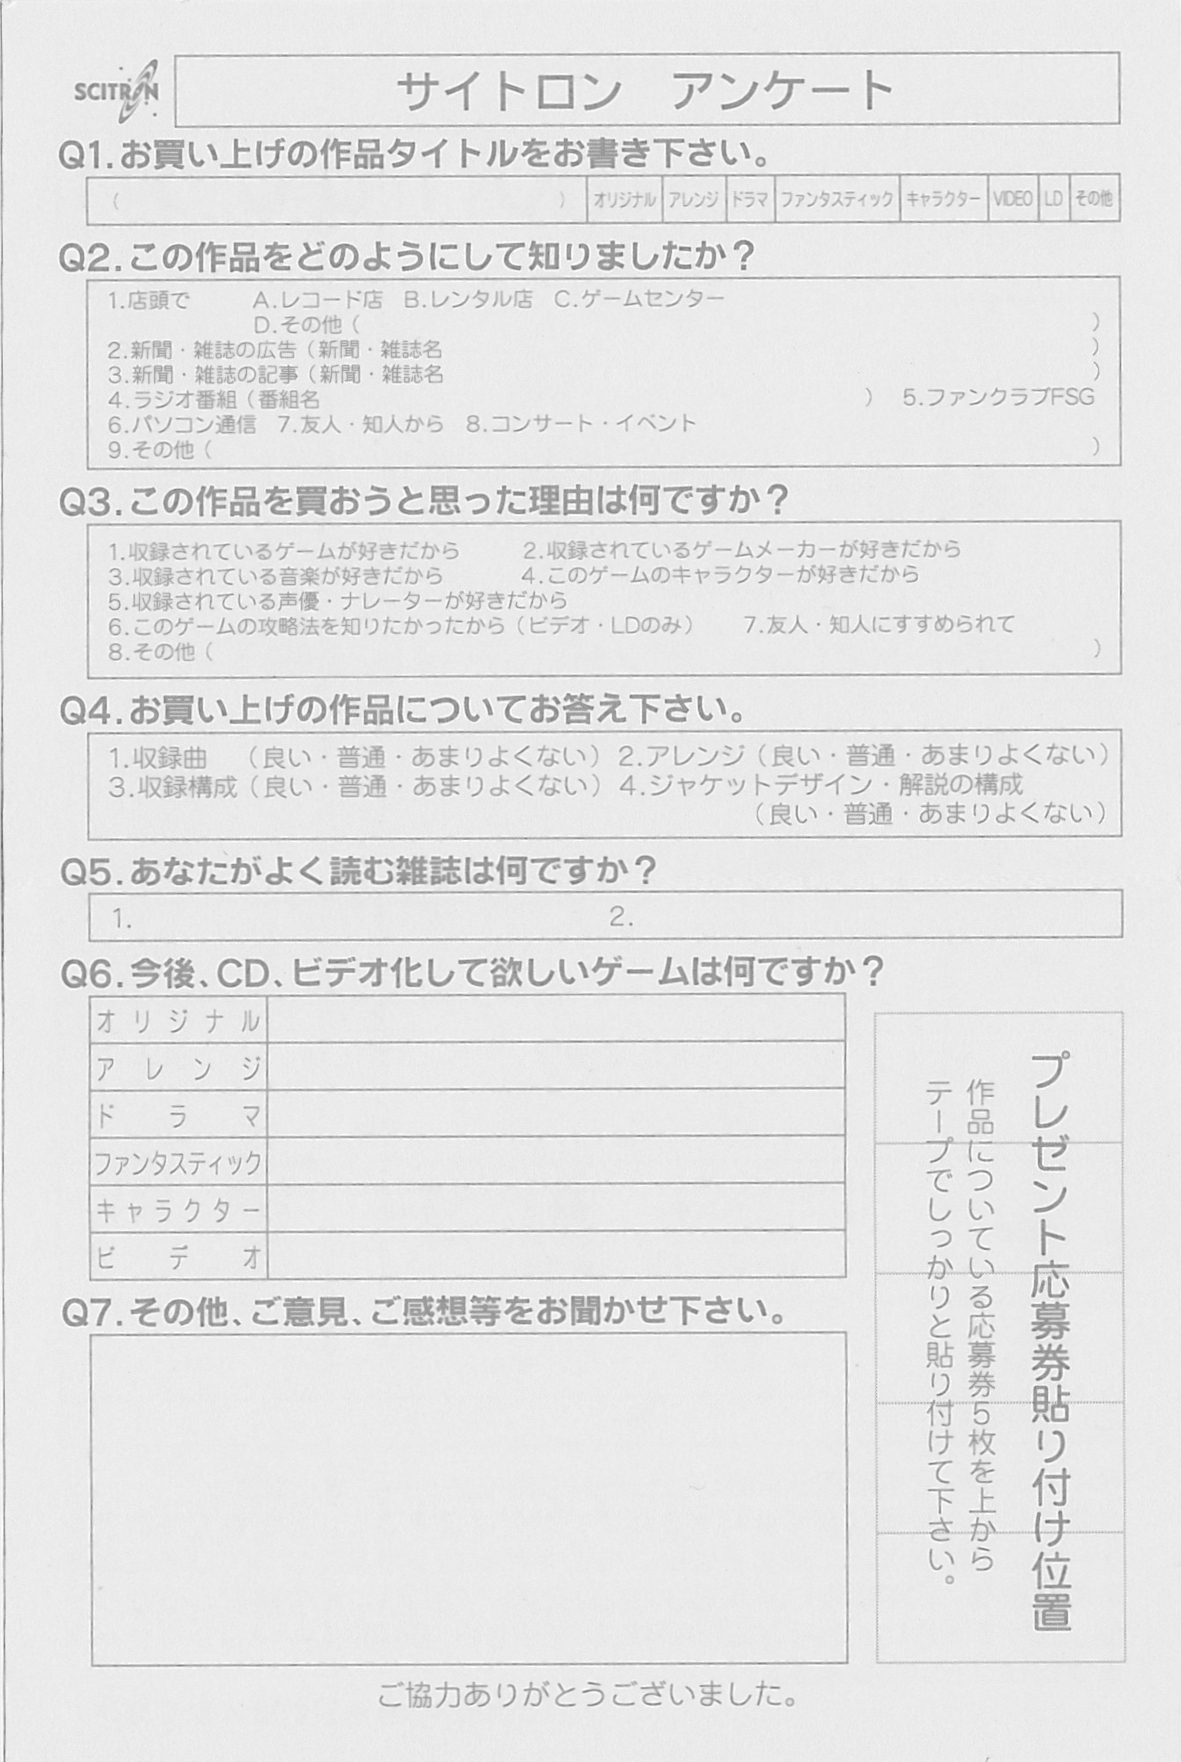 SCITRON
サイトロン アンケート
Q1.お買い上げの作品タイトルをお書き下さい。
( ) オリジナル アレンジ ドラマ ファンタスティック キャラクター VIDEO LD その他
Q2.この作品をどのようにして知りましたか？
1.店頭で A.レコード店 B.レンタル店 C.ゲームセンター
D.その他( )
2.新聞・雑誌の広告(新聞・雑誌名 )
3.新聞・雑誌の記事(新聞・雑誌名 )
4.ラジオ番組(番組名 ) 5.ファンクラブFSG
6.パソコン通信 7.友人・知人から 8.コンサート・イベント
9.その他( )
Q3.この作品を買おうと思った理由は何ですか？
1.収録されているゲームが好きだから 2.収録されているゲームメーカーが好きだから
3.収録されている音楽が好きだから 4.このゲームのキャラクターが好きだから
5.収録されている声優・ナレーターが好きだから
6.このゲームの攻略法を知りたかったから(ビデオ・LDのみ) 7.友人・知人にすすめられて
8.その他( )
Q4.お買い上げの作品についてお答え下さい。
1.収録曲 (良い・普通・あまりよくない) 2.アレンジ(良い・普通・あまりよくない)
3.収録構成(良い・普通・あまりよくない) 4.ジャケットデザイン・解説の構成
(良い・普通・あまりよくない)
Q5.あなたがよく読む雑誌は何ですか？
1. 2.
Q6.今後、CD、ビデオ化して欲しいゲームは何ですか？
オリジナル
アレンジ
ドラマ
ファンタスティック
キャラクター
ビデオ
プレゼント応募券貼り付け位置
作品についている応募券5枚を上から
テープでしっかりと貼り付けて下さい。
Q7.その他、ご意見、ご感想等をお聞かせ下さい。
ご協力ありがとうございました。